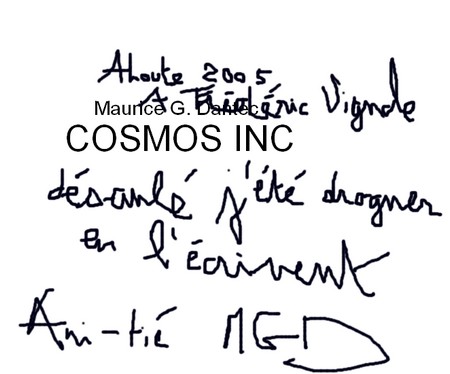 Ahoute 2005
A Frédéric Vignale
Maurice G. Dantec
COSMOS INC
désanlé j'été drogner
en l'écrivent
Ami-tié MGD